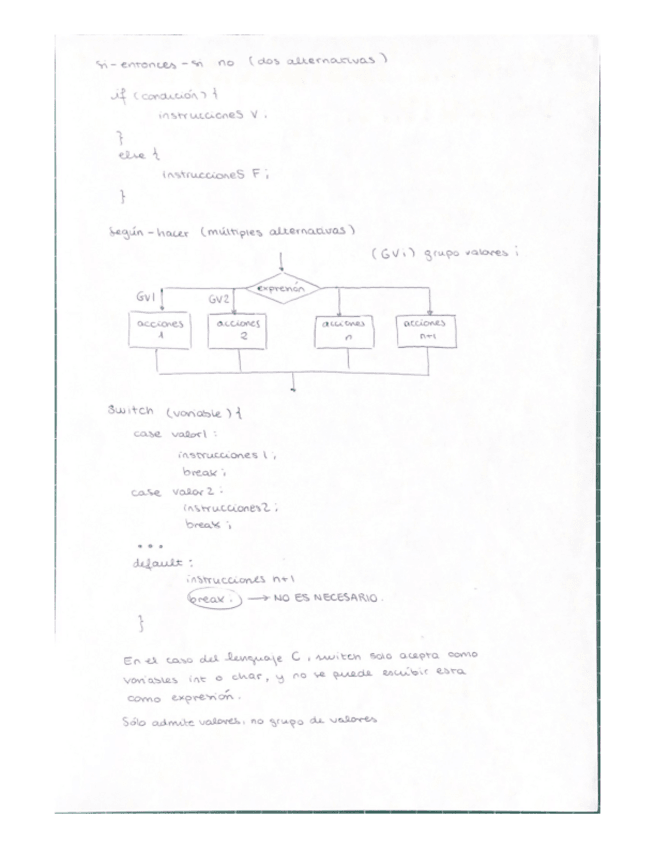 si-entonces-si no (dos alternativas)
if (condición) {
instrucciones V;
}
else {
instrucciones F;
}
Según-hacer (múltiples alternativas)
(GVi) grupo valores i
expresión
GV1
GV2
acciones
1
acciones
2
acciones
n
acciones
n+1
Switch (variable) {
case valor1:
instrucciones1;
break;
case valor2:
instrucciones2;
break;
...
default:
instrucciones n+1
break; → NO ES NECESARIO.
}
En el caso del lenguaje C, switch solo acepta como
variables int o char, y no se puede escribir esta
como expresión.
Sólo admite valores, no grupo de valores